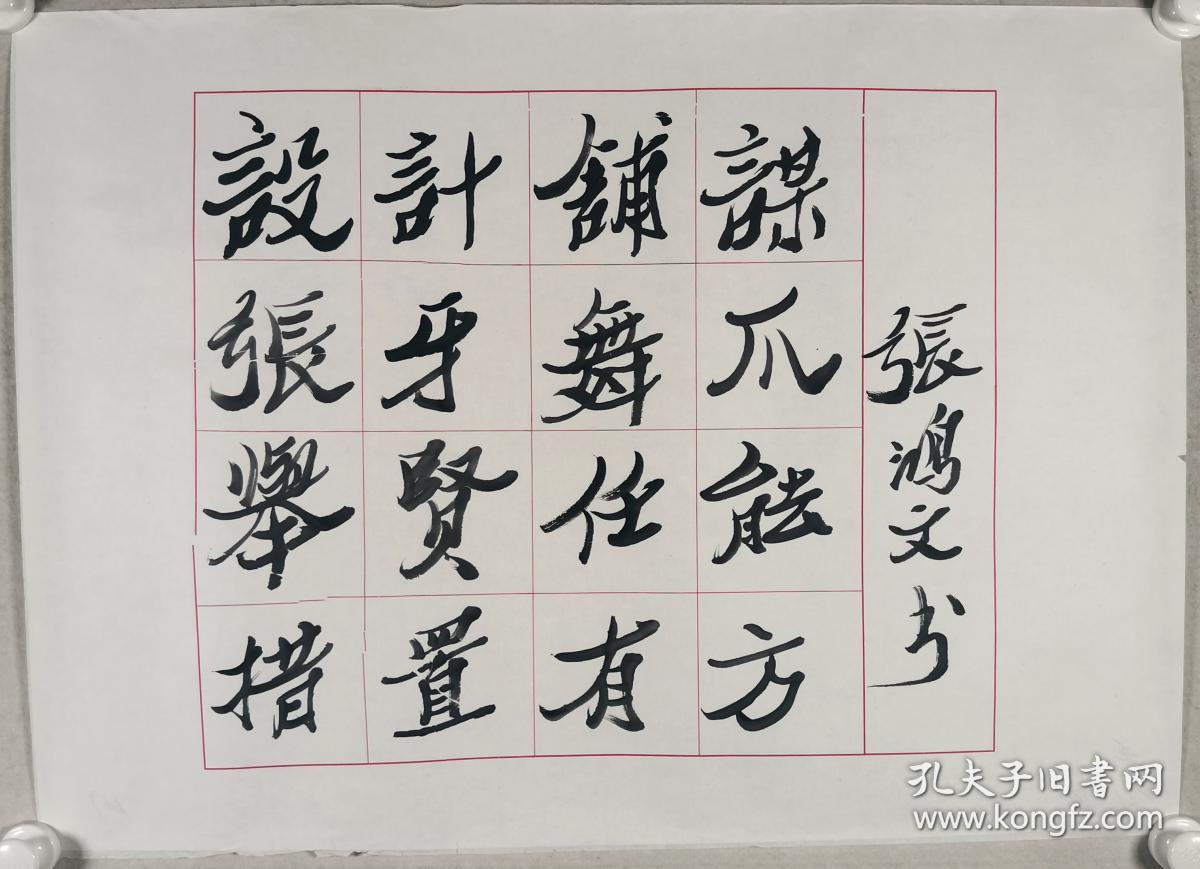 設計舖謀
張牙舞爪
舉賢任能
措置有方
張鴻文书
孔夫子旧書网
www.kongfz.com